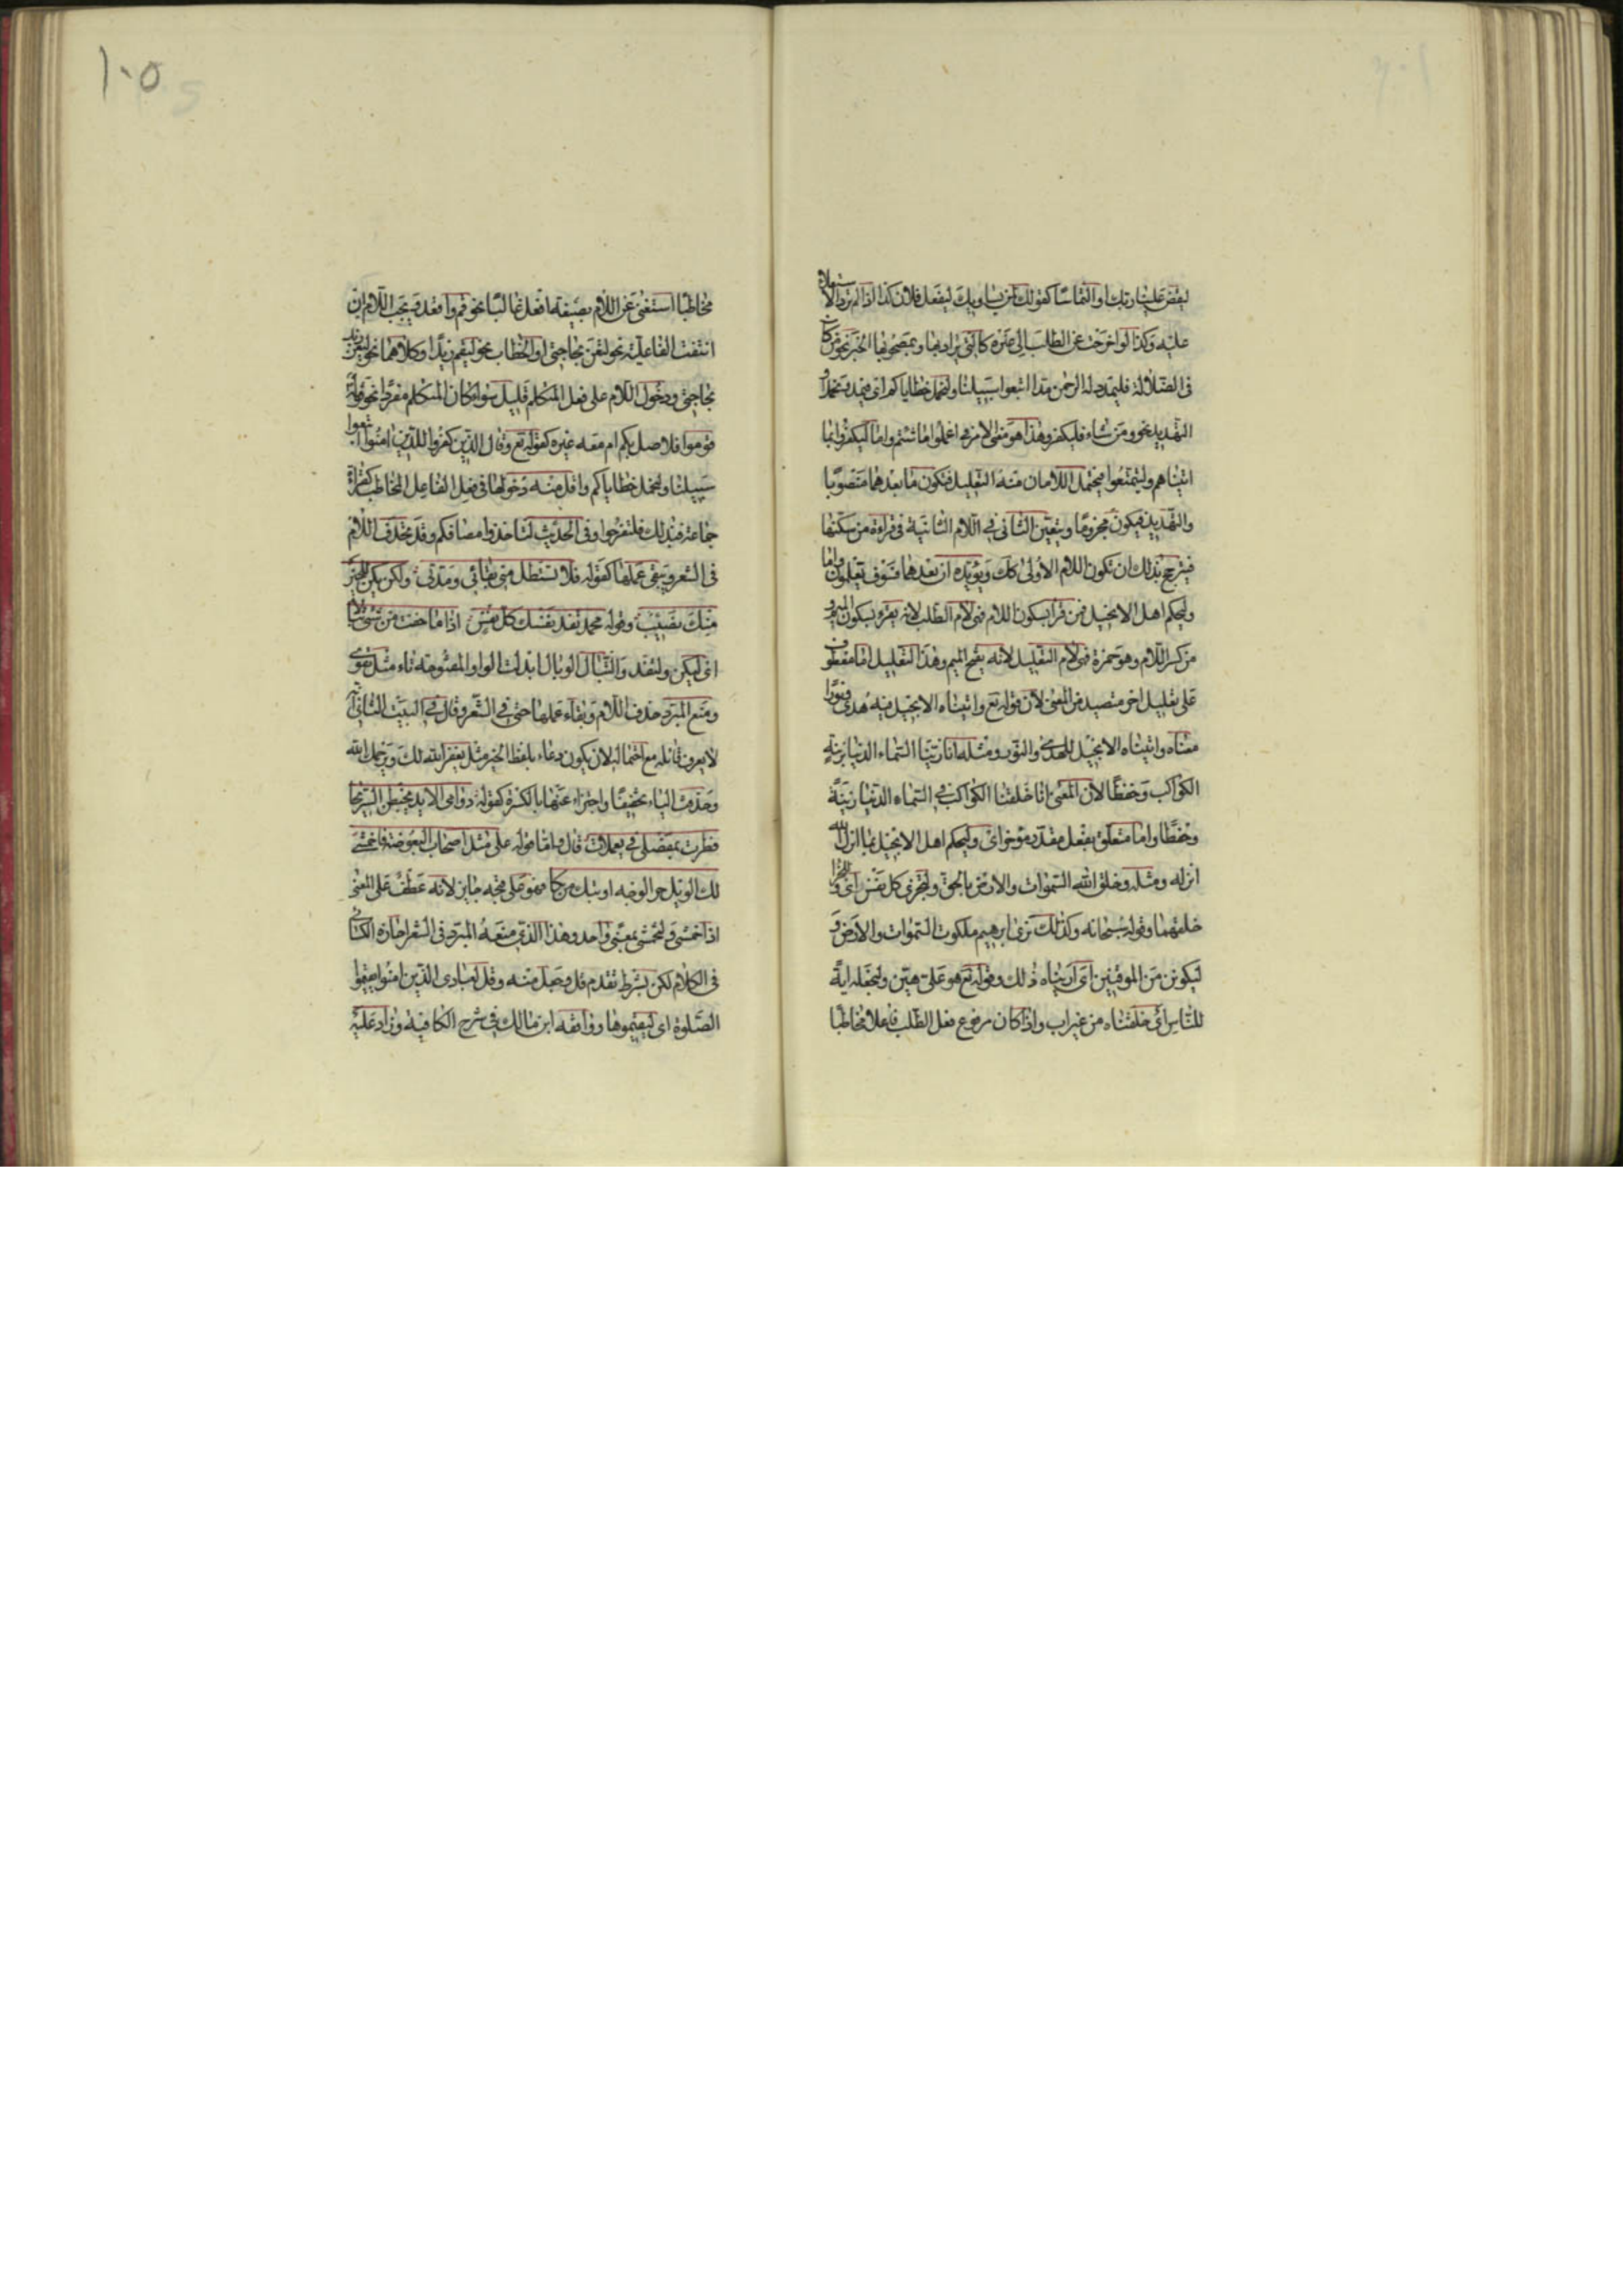 ليقض علينا ربك او التماسا كقولك لمن يساويك ليفعل فلان كذا اذا لم ترد الاستعلاء
عليه وكذا لو اخرجت عن الطلب الى غيره كالتي يراد بها وبمصحوبها الخبر نحو من كان
فى الضلالة فليمدد له الرحمن مدا اتبعوا سبيلنا ولنحمل خطاياكم اى فيمد ونحمل او
التهديد نحو ومن شاء فليكفر وهذا هو معنى الامر فى اعملوا ما شئتم واما ليكفروا بما
اتيناهم وليتمتعوا فيحتمل اللامان منه التعليل فيكون ما بعدهما منصوبا
والتهديد فيكون مجزوما ويتعين الثانى فى اللام الثانية فى قراءة من سكنها
فيترجح بذلك ان تكون اللام الاولى كك ويؤيده ان بعدهما فسوف تعلمون واما
وليحكم اهل الانجيل فمن قرا بسكون اللام فهى لام الطلب لانه يقرء بسكون الميم و
من كسر اللام وهو حمزة فهى لام التعليل لانه يفتح الميم وهذا التعليل اما معطوف
على تعليل اخر متصيد من المعنى لان قوله تع واتيناه الانجيل فيه هدى ونورا
معناه واتيناه الانجيل للهدى والنور ومثله انا زينا السماء الدنيا بزينة
الكواكب وحفظا لان المعنى انا خلقنا الكواكب فى السماء الدنيا زينة
وحفظا واما متعلق بفعل مقدر موخر اى وليحكم اهل الانجيل بما انزل الله
انزله ومثله وخلق الله السموات والارض بالحق ولتجزى كل نفس اى وللجزا
خلقهما وقوله سبحانه وكذلك نرى ابرهيم ملكوت السموات والارض و
ليكونن من الموقنين اى اريناه ذلك وقوله تع هو على هين ولنجعله اية
للناس اى خلقناه من غير اب واذا كان مرفوع فعل الطلب فاعلا مخاطبا
١٠٥
مخاطبا استغنى عن اللام بصيغة افعل غالبا نحو قم واقعد ويجب اللام ان
انتفت الفاعلية نحو لتعن بحاجتى او الخطاب نحو ليقم زيد او كلاهما نحو ليعن زيد
بحاجتى ودخول اللام على فعل المتكلم قليل سواء كان المتكلم مفردا نحو قوله
قوموا فلاصل بكم ام معه غيره كقوله تع وقال الذين كفروا للذين امنوا اتبعوا
سبيلنا ولنحمل خطاياكم واقل منه دخولها فى فعل الفاعل المخاطب كقراءة
جماعة فبذلك فلتفرحوا وفى الحديث لتاخذوا مصافكم وقد تحذف اللام
فى الشعر ويبقى عملها كقوله فلا تستطل منى بقائى ومدتى ولكن يكن للخير
منك نصيب وقوله محمد تفد نفسك كل نفس اذا ما خفت من شىء تبالا
اى ليكن ولتفد والتبال الوبال ابدلت الواو المفتوحة تاء مثل تقوى
ومنع المبرد حذف اللام وبقاء عملها حتى فى الشعر وقال فى البيت الثانى انه
لا يعرف قائله مع احتماله لان يكون دعاء بلفظ الخبر مثل يغفر الله لك ويرحمك الله
وحذفت الياء تخفيفا واجتزاء عنها بالكسرة كقوله دوامى الايد يخبطن السريحا
فطرت بمنصلى فى يعملات قال واما قوله على مثل اصحاب البعوضة فاخمشى
لك الويل حر الوجه او يبك من بكا فهو على قبحه جايز لانه عطف على المعنى
اذ اخمشى ولتخمشى بمعنى واحد وهذا الذى منعه المبرد فى الشعر اجازه الكسائى
فى الكلام لكن بشرط تقدم قل وجعل منه وقل لعبادى الذين امنوا يقيموا
الصلوة اى ليقيموها ووافقه ابن مالك فى شرح الكافية وزاد عليه